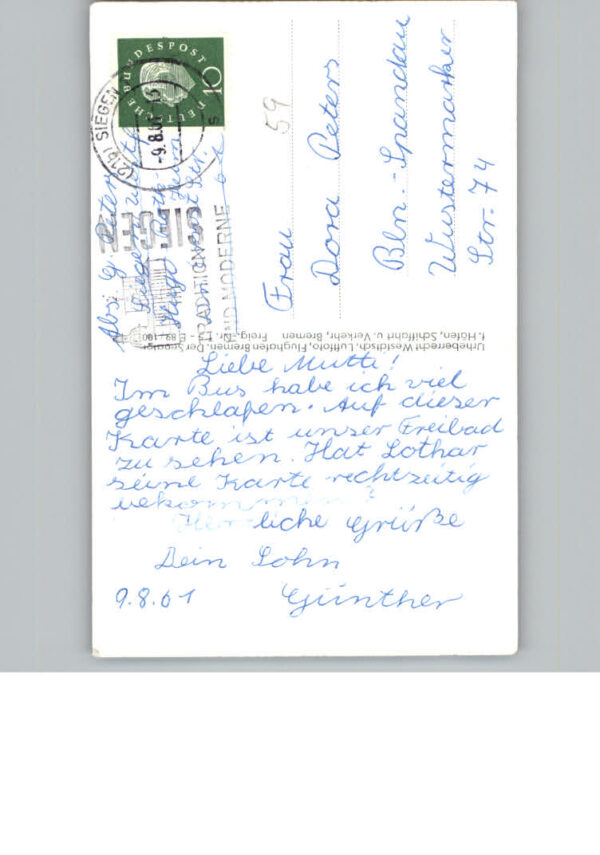 DEUTSCHE BUNDESPOST
10
(21b) SIEGEN
-9.8.61
SIEGEN
TRADITION
UND MODERNE
Abs: G. Peters
Siegen
59
Frau
Dora Peters
Bln.-Spandau
Wustermarker
Str. 74
Urheberrecht Westdtsch. Luftfoto, Flughafen Bremen. Der Senator
f. Häfen, Schiffahrt u. Verkehr, Bremen Freig.
Liebe Mutti!
Im Bus habe ich viel
geschlafen. Auf dieser
Karte ist unser Freibad
zu sehen. Hat Lothar
seine Karte rechtzeitig
bekommen?
Herzliche Grüße
Dein Sohn
9.8.61 Günther